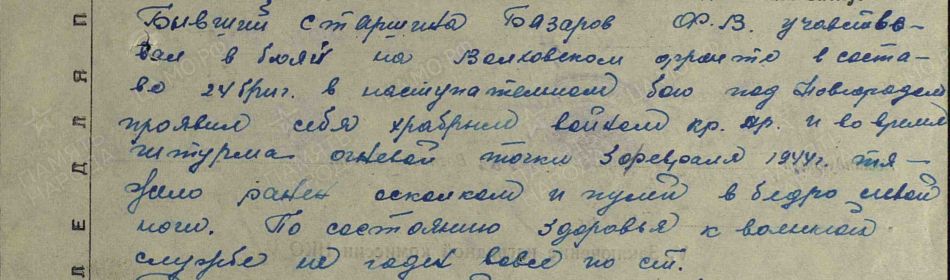 Бывший старшина Базаров Ф.В. участво-
вал в боях на Волховском фронте в соста-
ве 24 бриг. в наступательном бою под Новгородом
проявил себя храбрым войном кр. ар. и во время
штурма огневой точки 3 февраля 1944 г. тя-
жело ранен осколком и пулей в бедро левой
ноги. По состоянию здоровья к военной
службе не годен вовсе по ст.